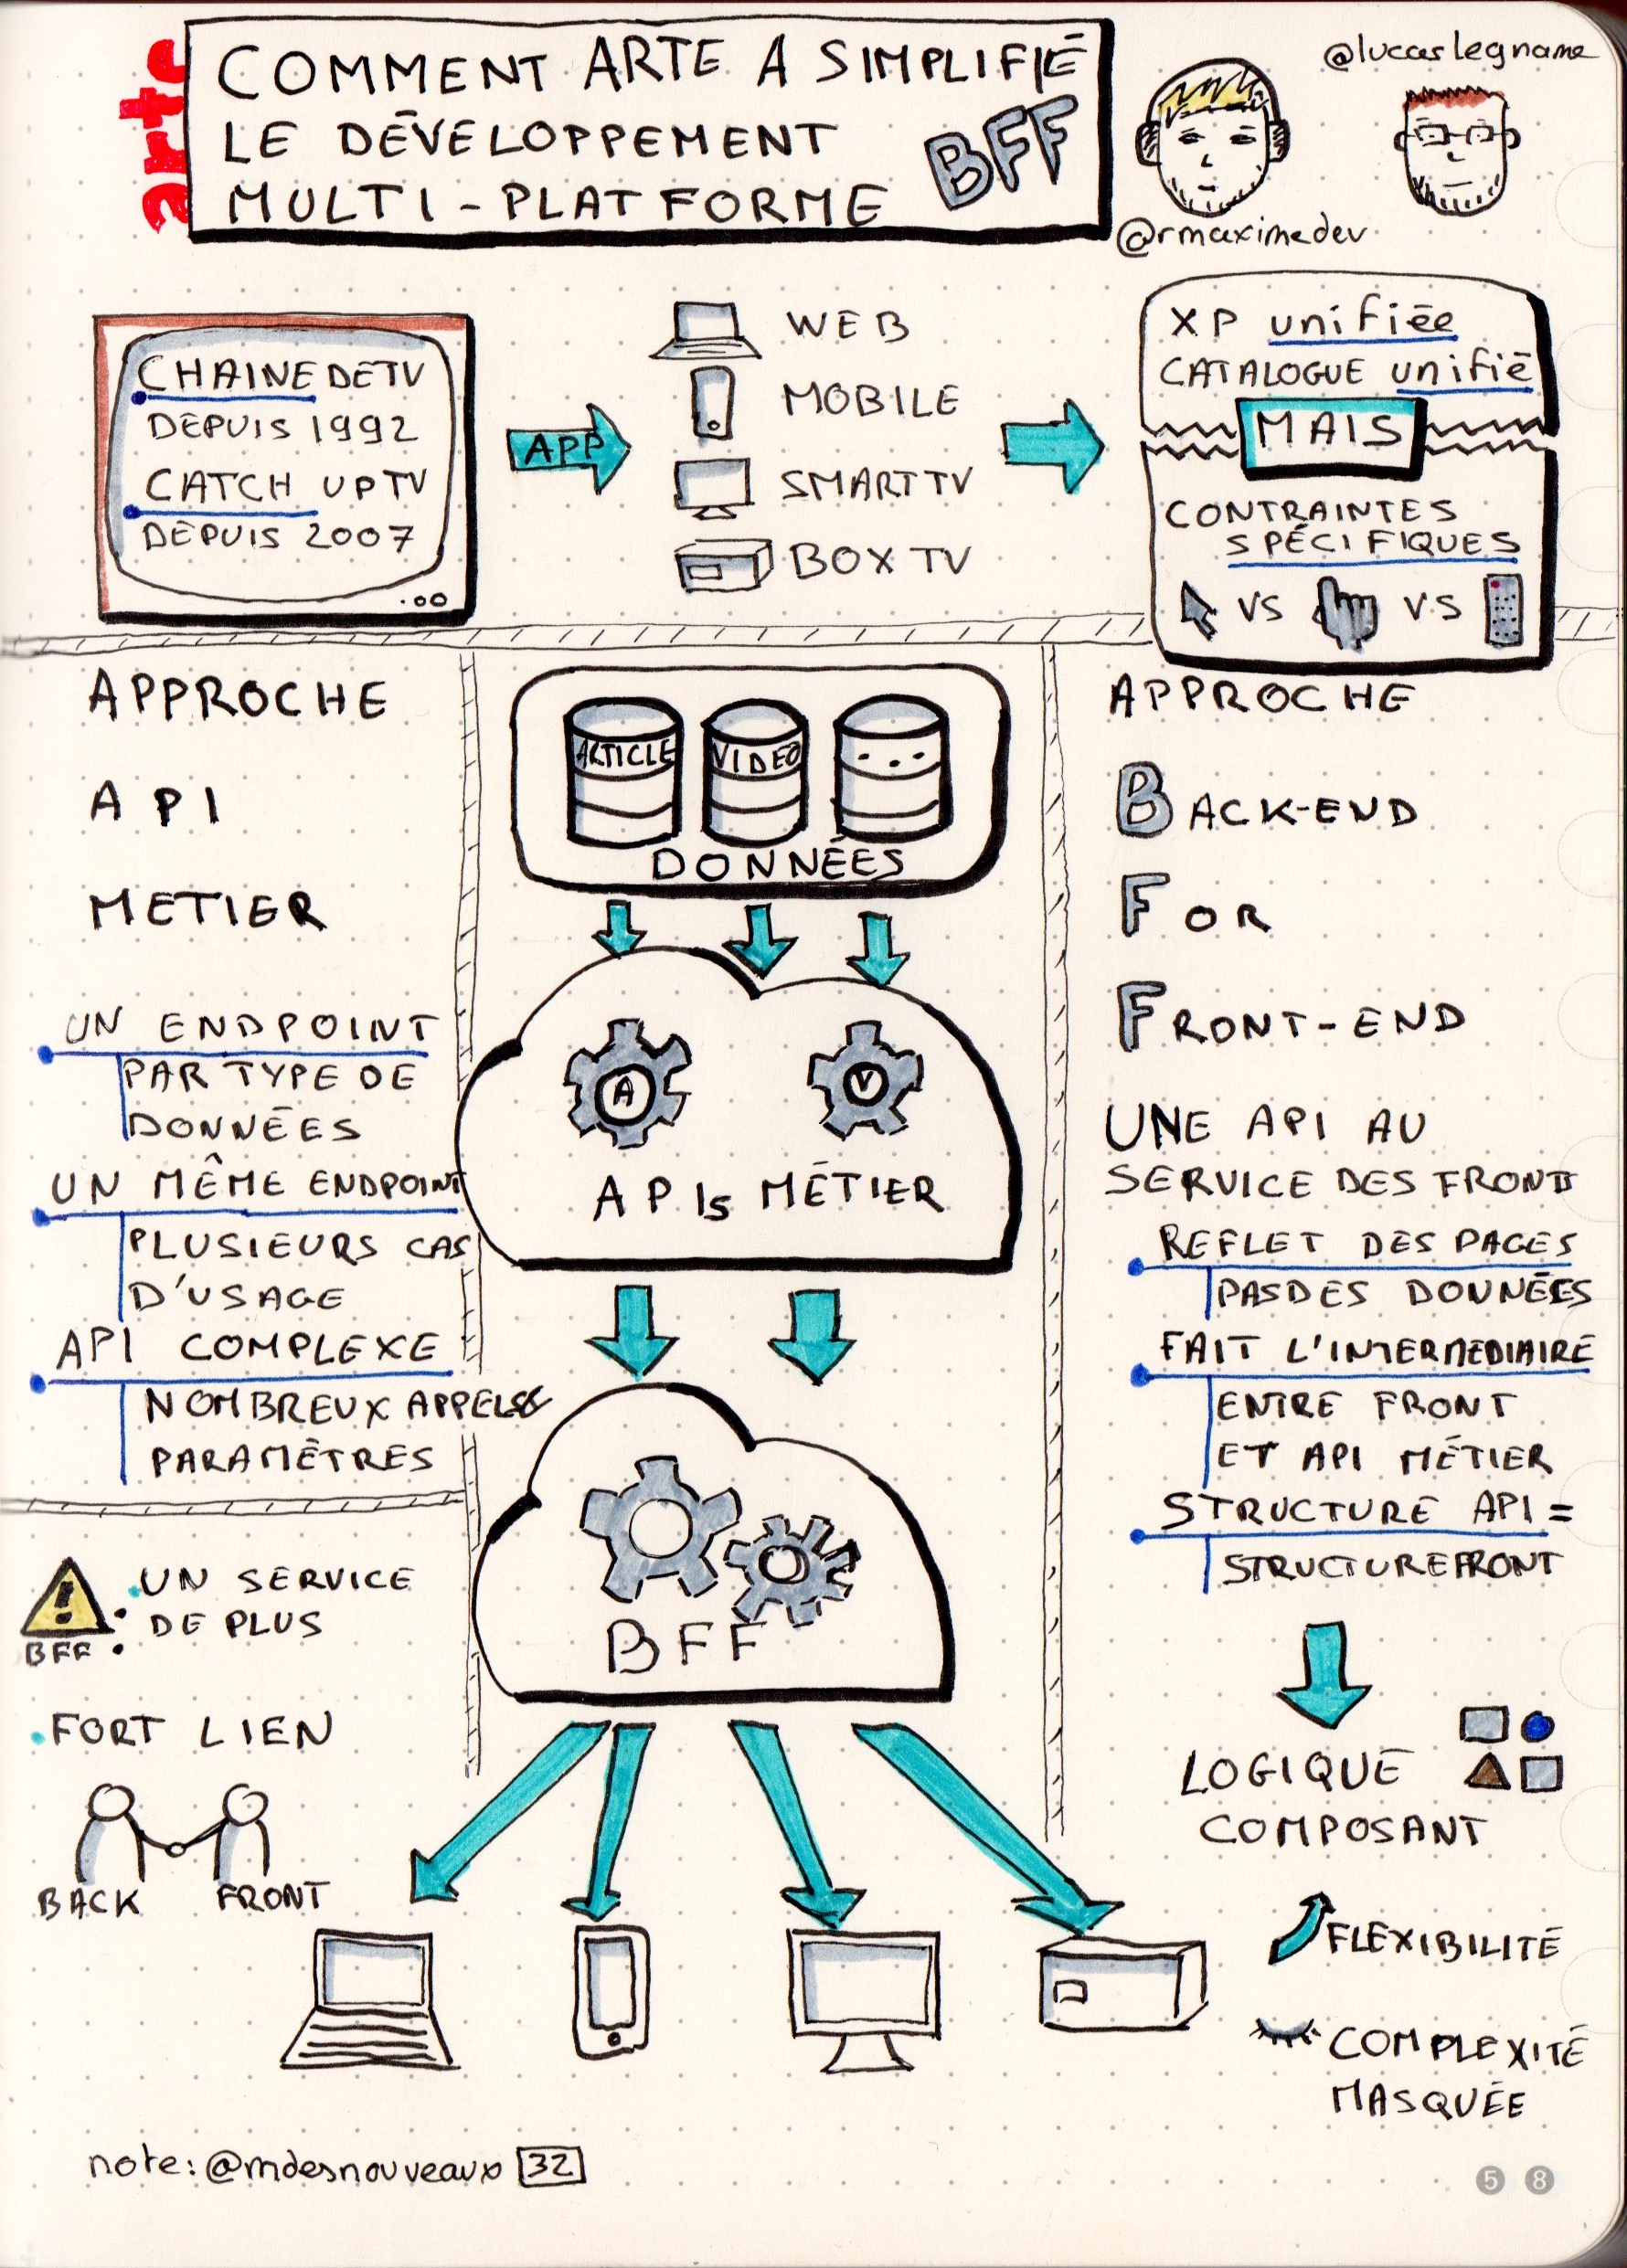 arte
COMMENT ARTE A SIMPLIFIÉ
LE DÉVELOPPEMENT
MULTI-PLATFORME
BFF
@lucaslegname
@rmaximedev
CHAINE DE TV
DEPUIS 1992
CATCH UP TV
DEPUIS 2007
APP
WEB
MOBILE
SMART TV
BOX TV
XP unifiée
CATALOGUE unifié
MAIS
CONTRAINTES
SPÉCIFIQUES
VS VS
APPROCHE
API
METIER
UN ENDPOINT
PAR TYPE DE
DONNÉES
UN MÊME ENDPOINT
PLUSIEURS CAS
D'USAGE
API COMPLEXE
NOMBREUX APPELS &
PARAMÈTRES
BFF :
UN SERVICE
DE PLUS
FORT LIEN
BACK FRONT
ARTICLE VIDEO ...
DONNÉES
A V
APIs MÉTIER
BFF
APPROCHE
BACK-END
FOR
FRONT-END
UNE API AU
SERVICE DES FRONTS
REFLET DES PAGES
PAS DES DONNÉES
FAIT L'INTERMEDIAIRE
ENTRE FRONT
ET API MÉTIER
STRUCTURE API =
STRUCTURE FRONT
LOGIQUE
COMPOSANT
FLEXIBILITÉ
COMPLEXITÉ
MASQUÉE
note: @mdesnouveaux 32
5 8